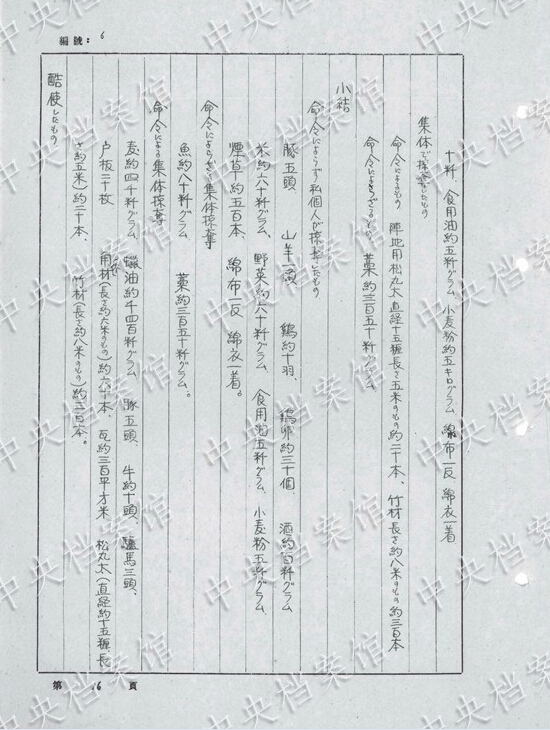 編號： 6
十粁、食用油約五粁グラム、小麦粉約五キログラム、綿布一反、綿衣一着
集体で掠奪したもの
命令によるもの 陣地用松丸太直経十五糎長さ五米のもの約二十本、竹材長さ約八米のもの約三百本
命令によらざるもの、藁約三百五十粁グラム
小結
命令によらずして私個人が掠奪したもの
豚五頭、山羊一頭、鶏約十羽、鶏卵約三十個 酒約百粁グラム
米約六十粁グラム、野菜約六十粁グラム、食用油五粁グラム、小麦粉五粁グラム、
煙草約五百本、綿布一反 綿衣一着。
命令によらざる集体掠奪
魚約八十粁グラム 藁約三百五十粁グラム。
命令による集体掠奪
麦約四千粁グラム、油約千四百粁グラム、豚五頭、牛約十頭、驢馬三頭、
戸板二十枚 用材(長さ約六米のもの)約六十本、瓦約三百平方米 松丸太(直経約十五糎、長
さ約五米)約二十本、竹材(長さ約八米のもの)約三百本。
酷使したもの
第 16 頁
中央档案馆